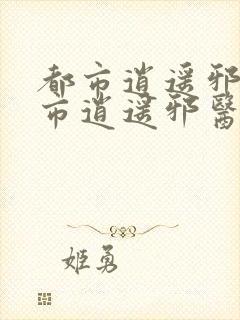 都市逍遥邪
市逍遥邪醫
姬勇